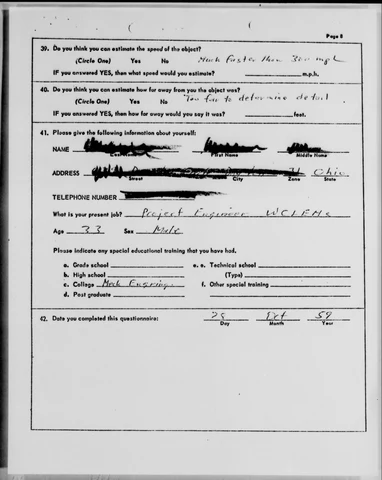 Page 8
39. Do you think you can estimate the speed of the object?
(Circle One) Yes No Much faster than 300 mph
IF you answered YES, then what speed would you estimate? m.p.h.
40. Do you think you can estimate how far away from you the object was?
(Circle One) Yes No Too far to determine detail
IF you answered YES, then how far away would you say it was? feet.
41. Please give the following information about yourself:
NAME
Last Name First Name Middle Name
ADDRESS Ohio
Street City Zone State
TELEPHONE NUMBER
What is your present job? Project Engineer
Age 33 Sex Male
Please indicate any special educational training that you have had.
a. Grade school e. e. Technical school
b. High school (Type)
c. College Mech f. Other special training
d. Post graduate
42. Date you completed this questionnaire: 59
Day Month Year